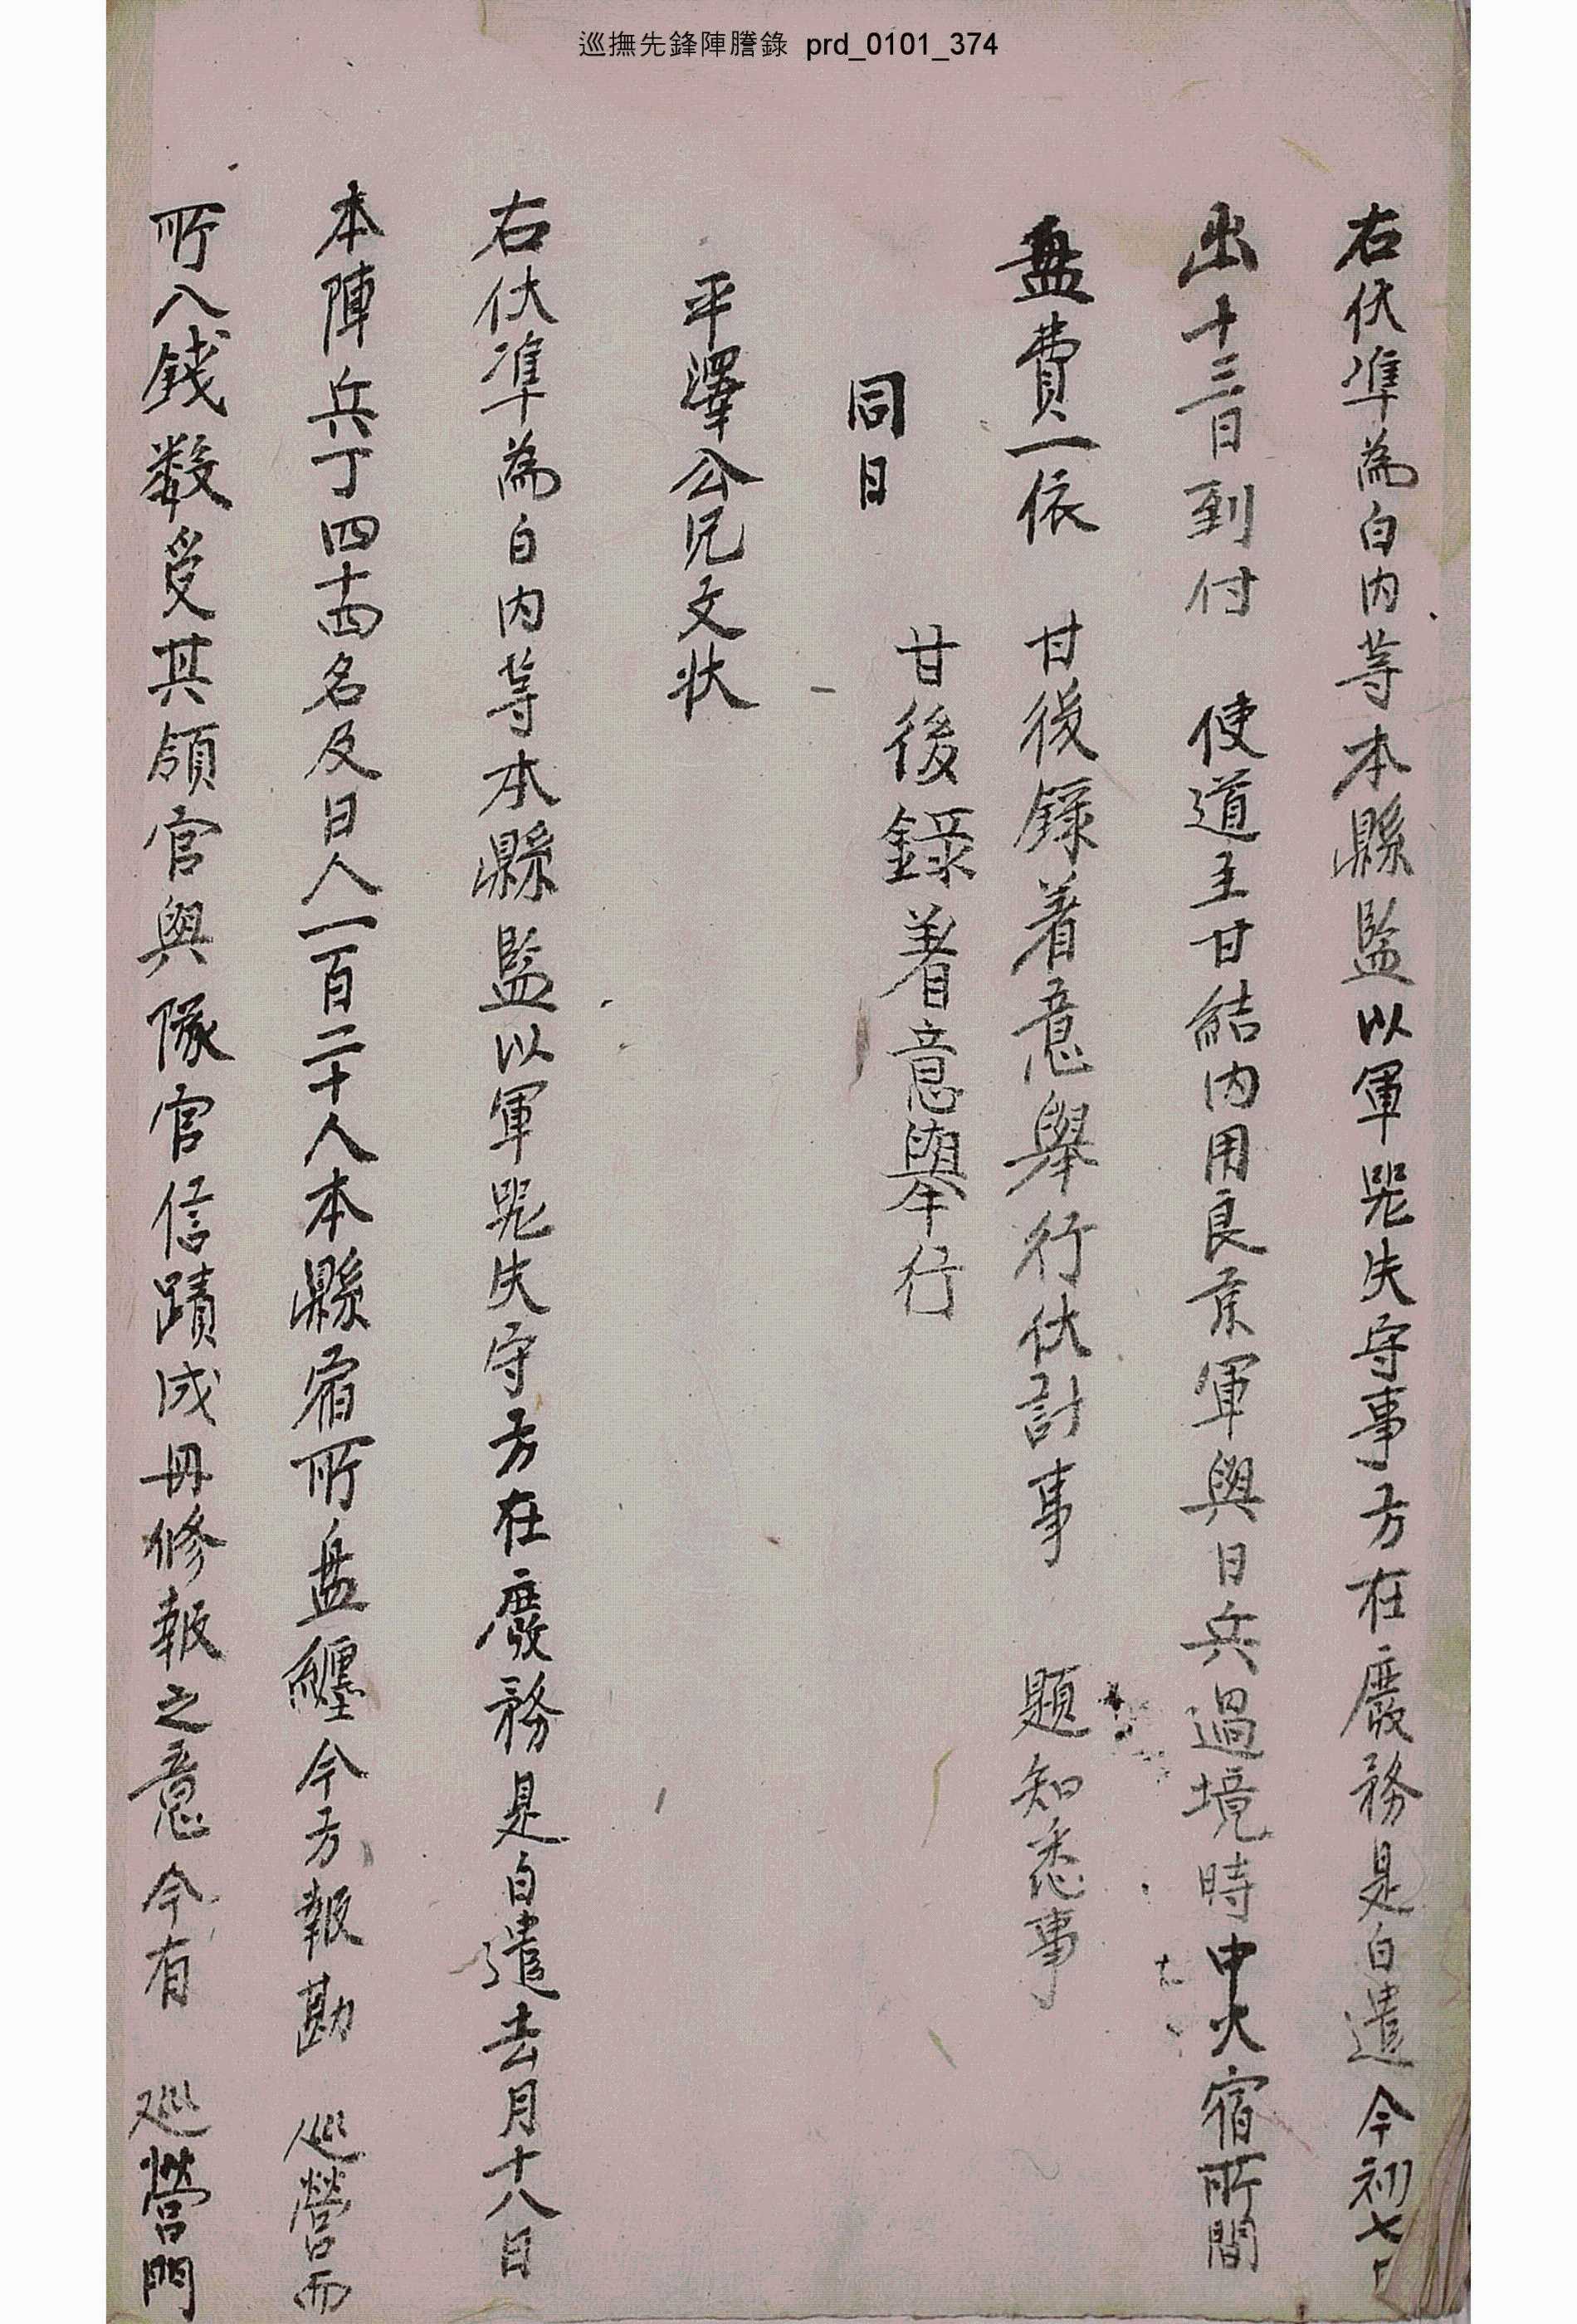 巡撫先鋒陣謄錄 prd_0101_374
右伏準為白內等本縣監以軍器失守事方在廢務是白遣今初七日
出十三日到付 使道主甘結內用良京軍與日兵過境時中火宿所間
盤費一依 甘後錄着意舉行伏計事 題知悉事
甘後錄着意舉行
同日
平澤公兄文狀
右伏準為白內等本縣監以軍器失守方在廢務是白遣去月十八日
本陣兵丁四十四名及日人一百二十人本縣宿所盤纏今方報勘 巡營而
所入錢数受其領官與隊官信蹟成冊修報之意今有 巡營門